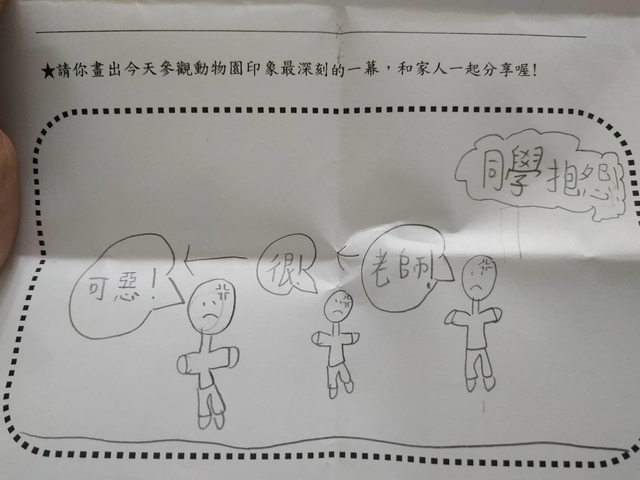 ★請你畫出今天參觀動物園印象最深刻的一幕，和家人一起分享喔！
同學抱怨
老師！
很！
可惡！